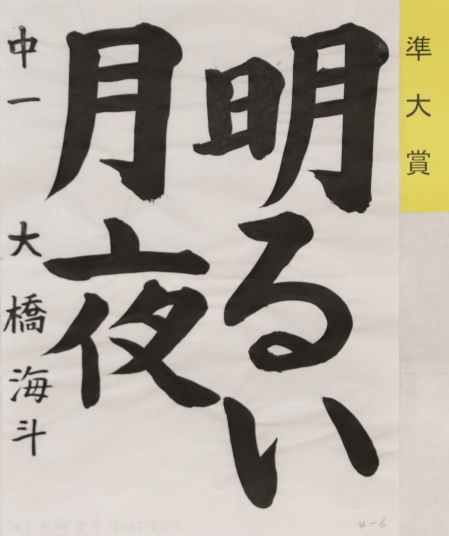 準大賞
明るい
月夜
中一 大橋海斗
4-6